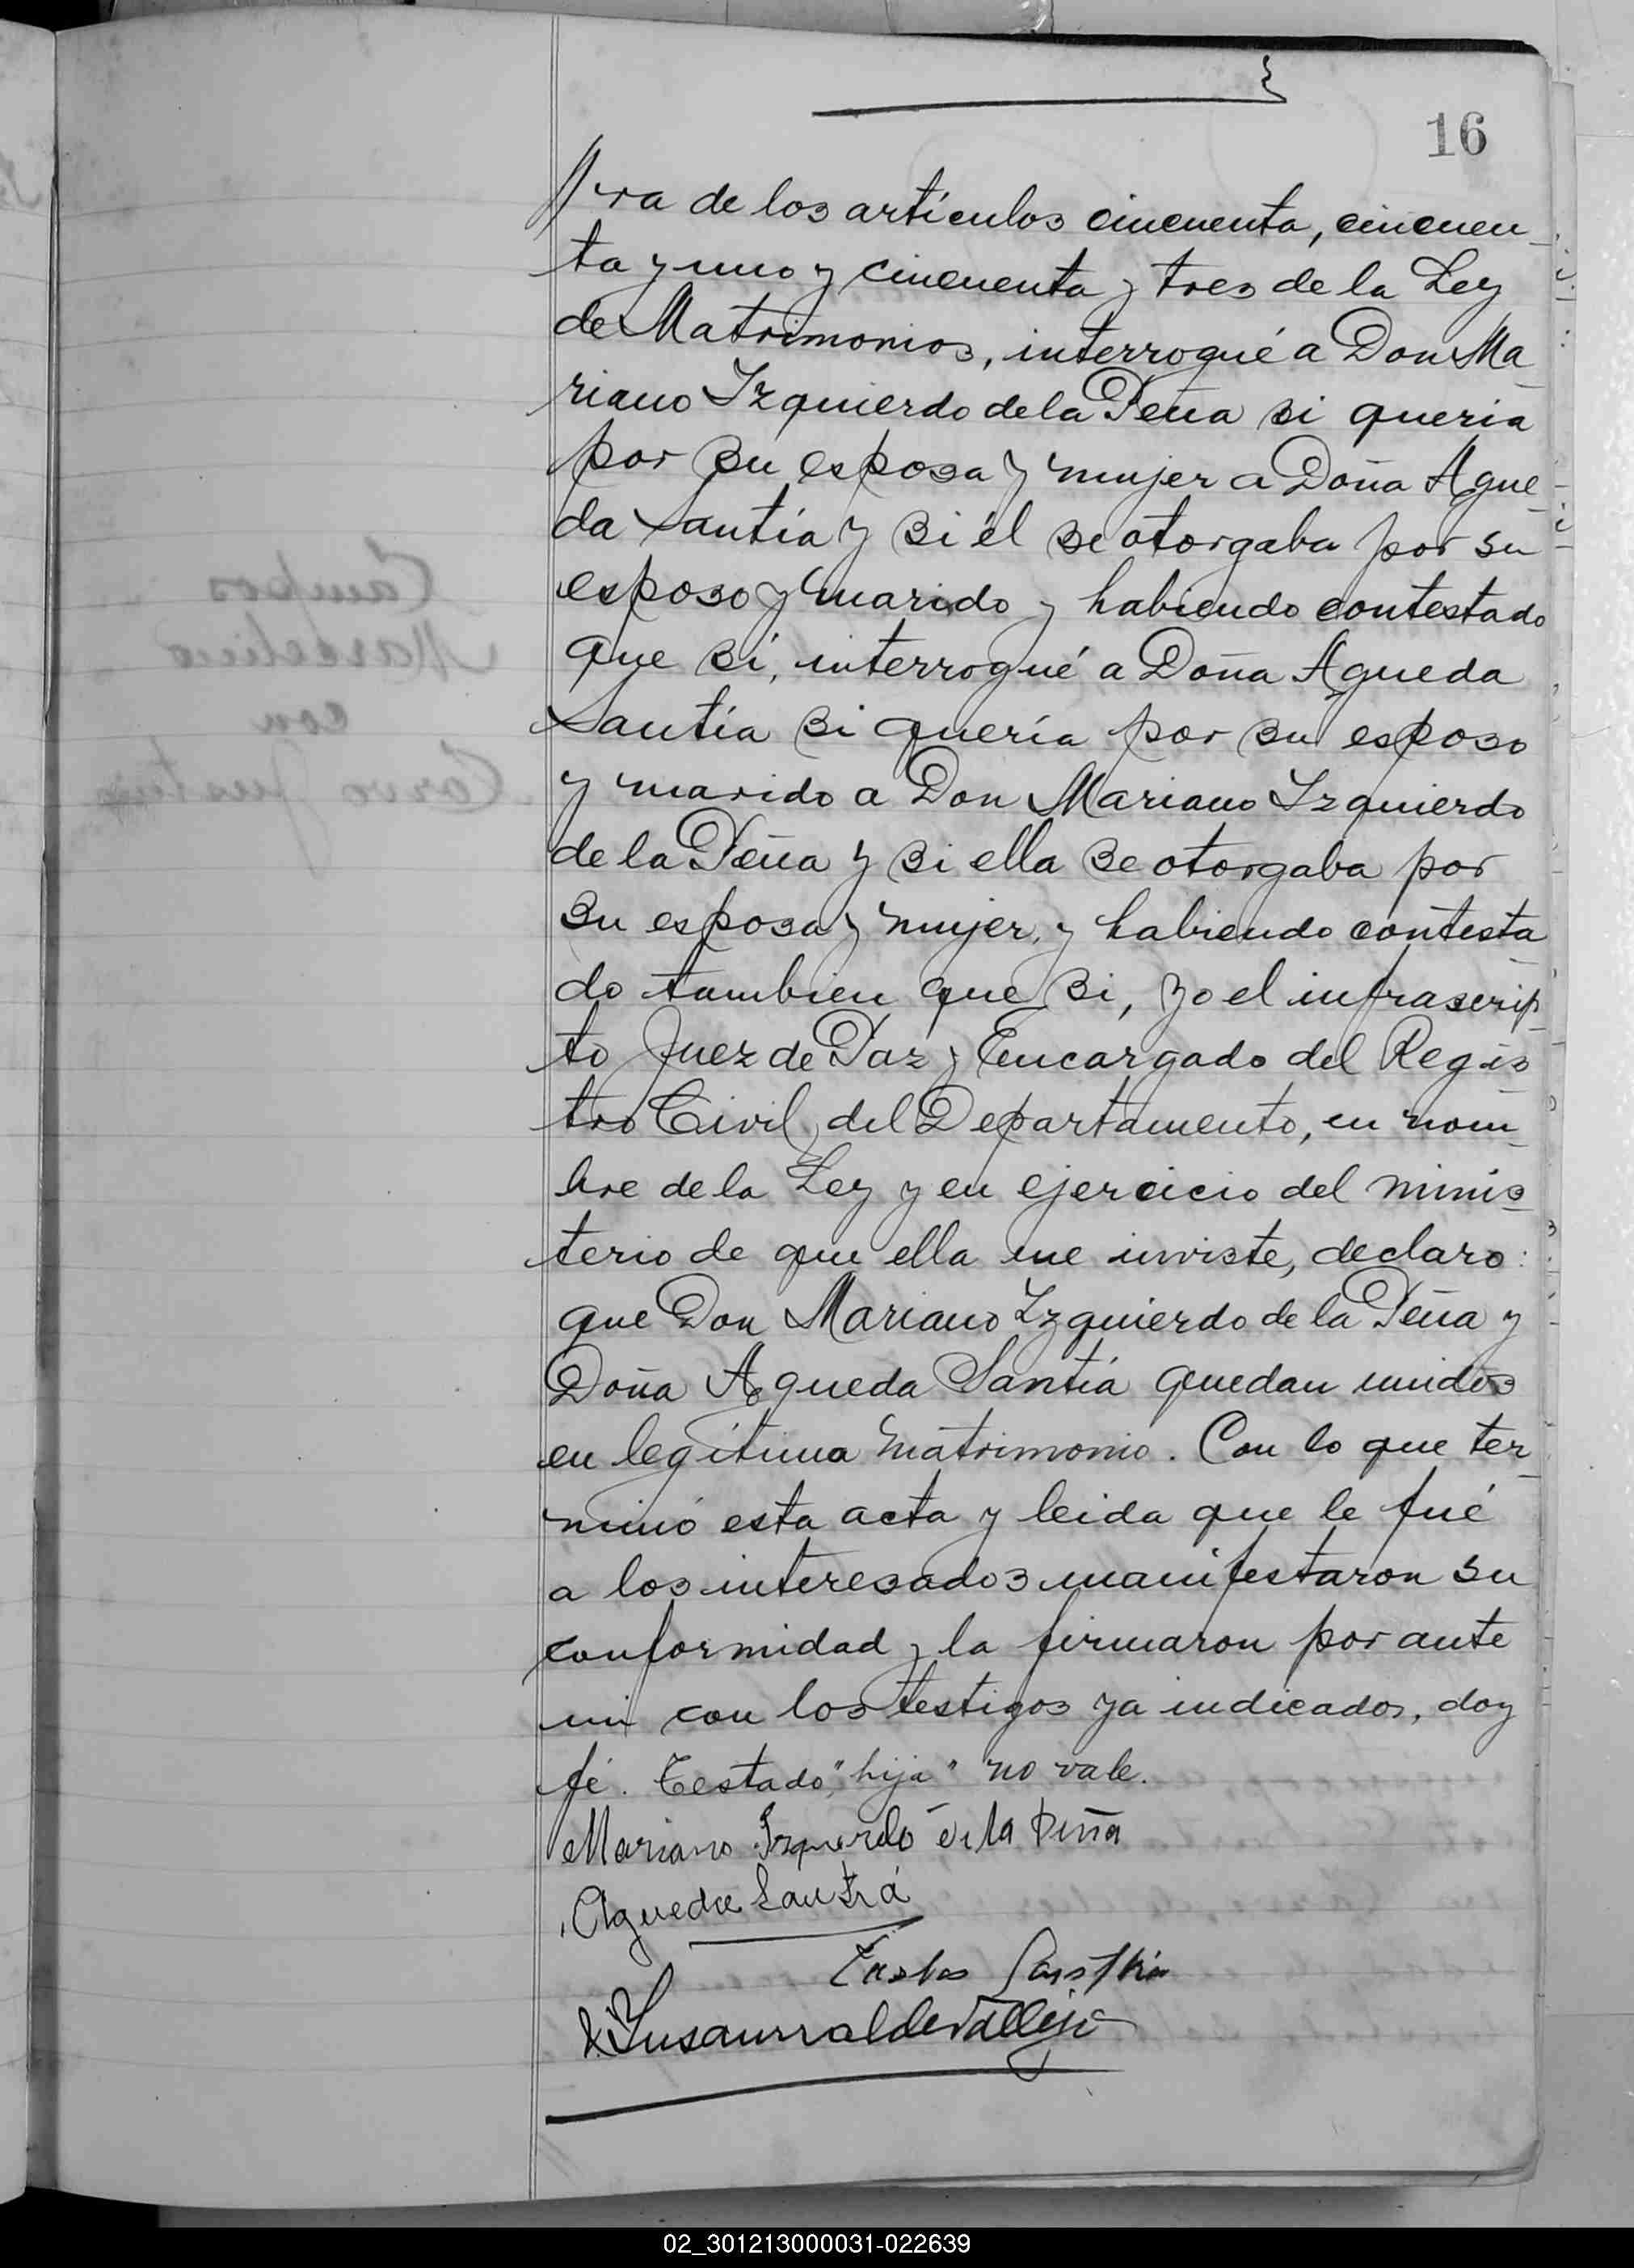 16
ra de los artículos cincuenta, cincuen-
ta y uno y cincuenta y tres de la Ley
de Matrimonios, interrogué a Don Ma-
riano Izquierdo de la Peña si queria
por su esposa y mujer a Doña Ague-
da Santía y si él se otorgaba por su
esposo y marido y habiendo contestado
que sí, interrogué a Doña Agueda
Santía si quería por su esposo
y marido a Don Mariano Izquierdo
de la Peña y si ella se otorgaba por
su esposa y mujer, y habiendo contesta-
do tambien que si, yo el infrascrip-
to Juez de Paz y Encargado del Regis-
tro Civil del Departamento, en nom-
bre de la Ley y en ejercicio del minis-
terio de que ella me inviste, declaro:
que Don Mariano Izquierdo de la Peña y
Doña Agueda Santiá quedan unidos
en legítimo matrimonio. Con lo que ter-
minó esta acta y leida que le fué
a los interesados manifestaron su
conformidad y la firmaron por ante
mi con los testigos ya indicados, doy
fé. Testado "hija" no vale.
Mariano Izquierdo de la Peña
Agueda Santiá
Campos
Marcelino
con
Corvo Justina
02_301213000031-022639